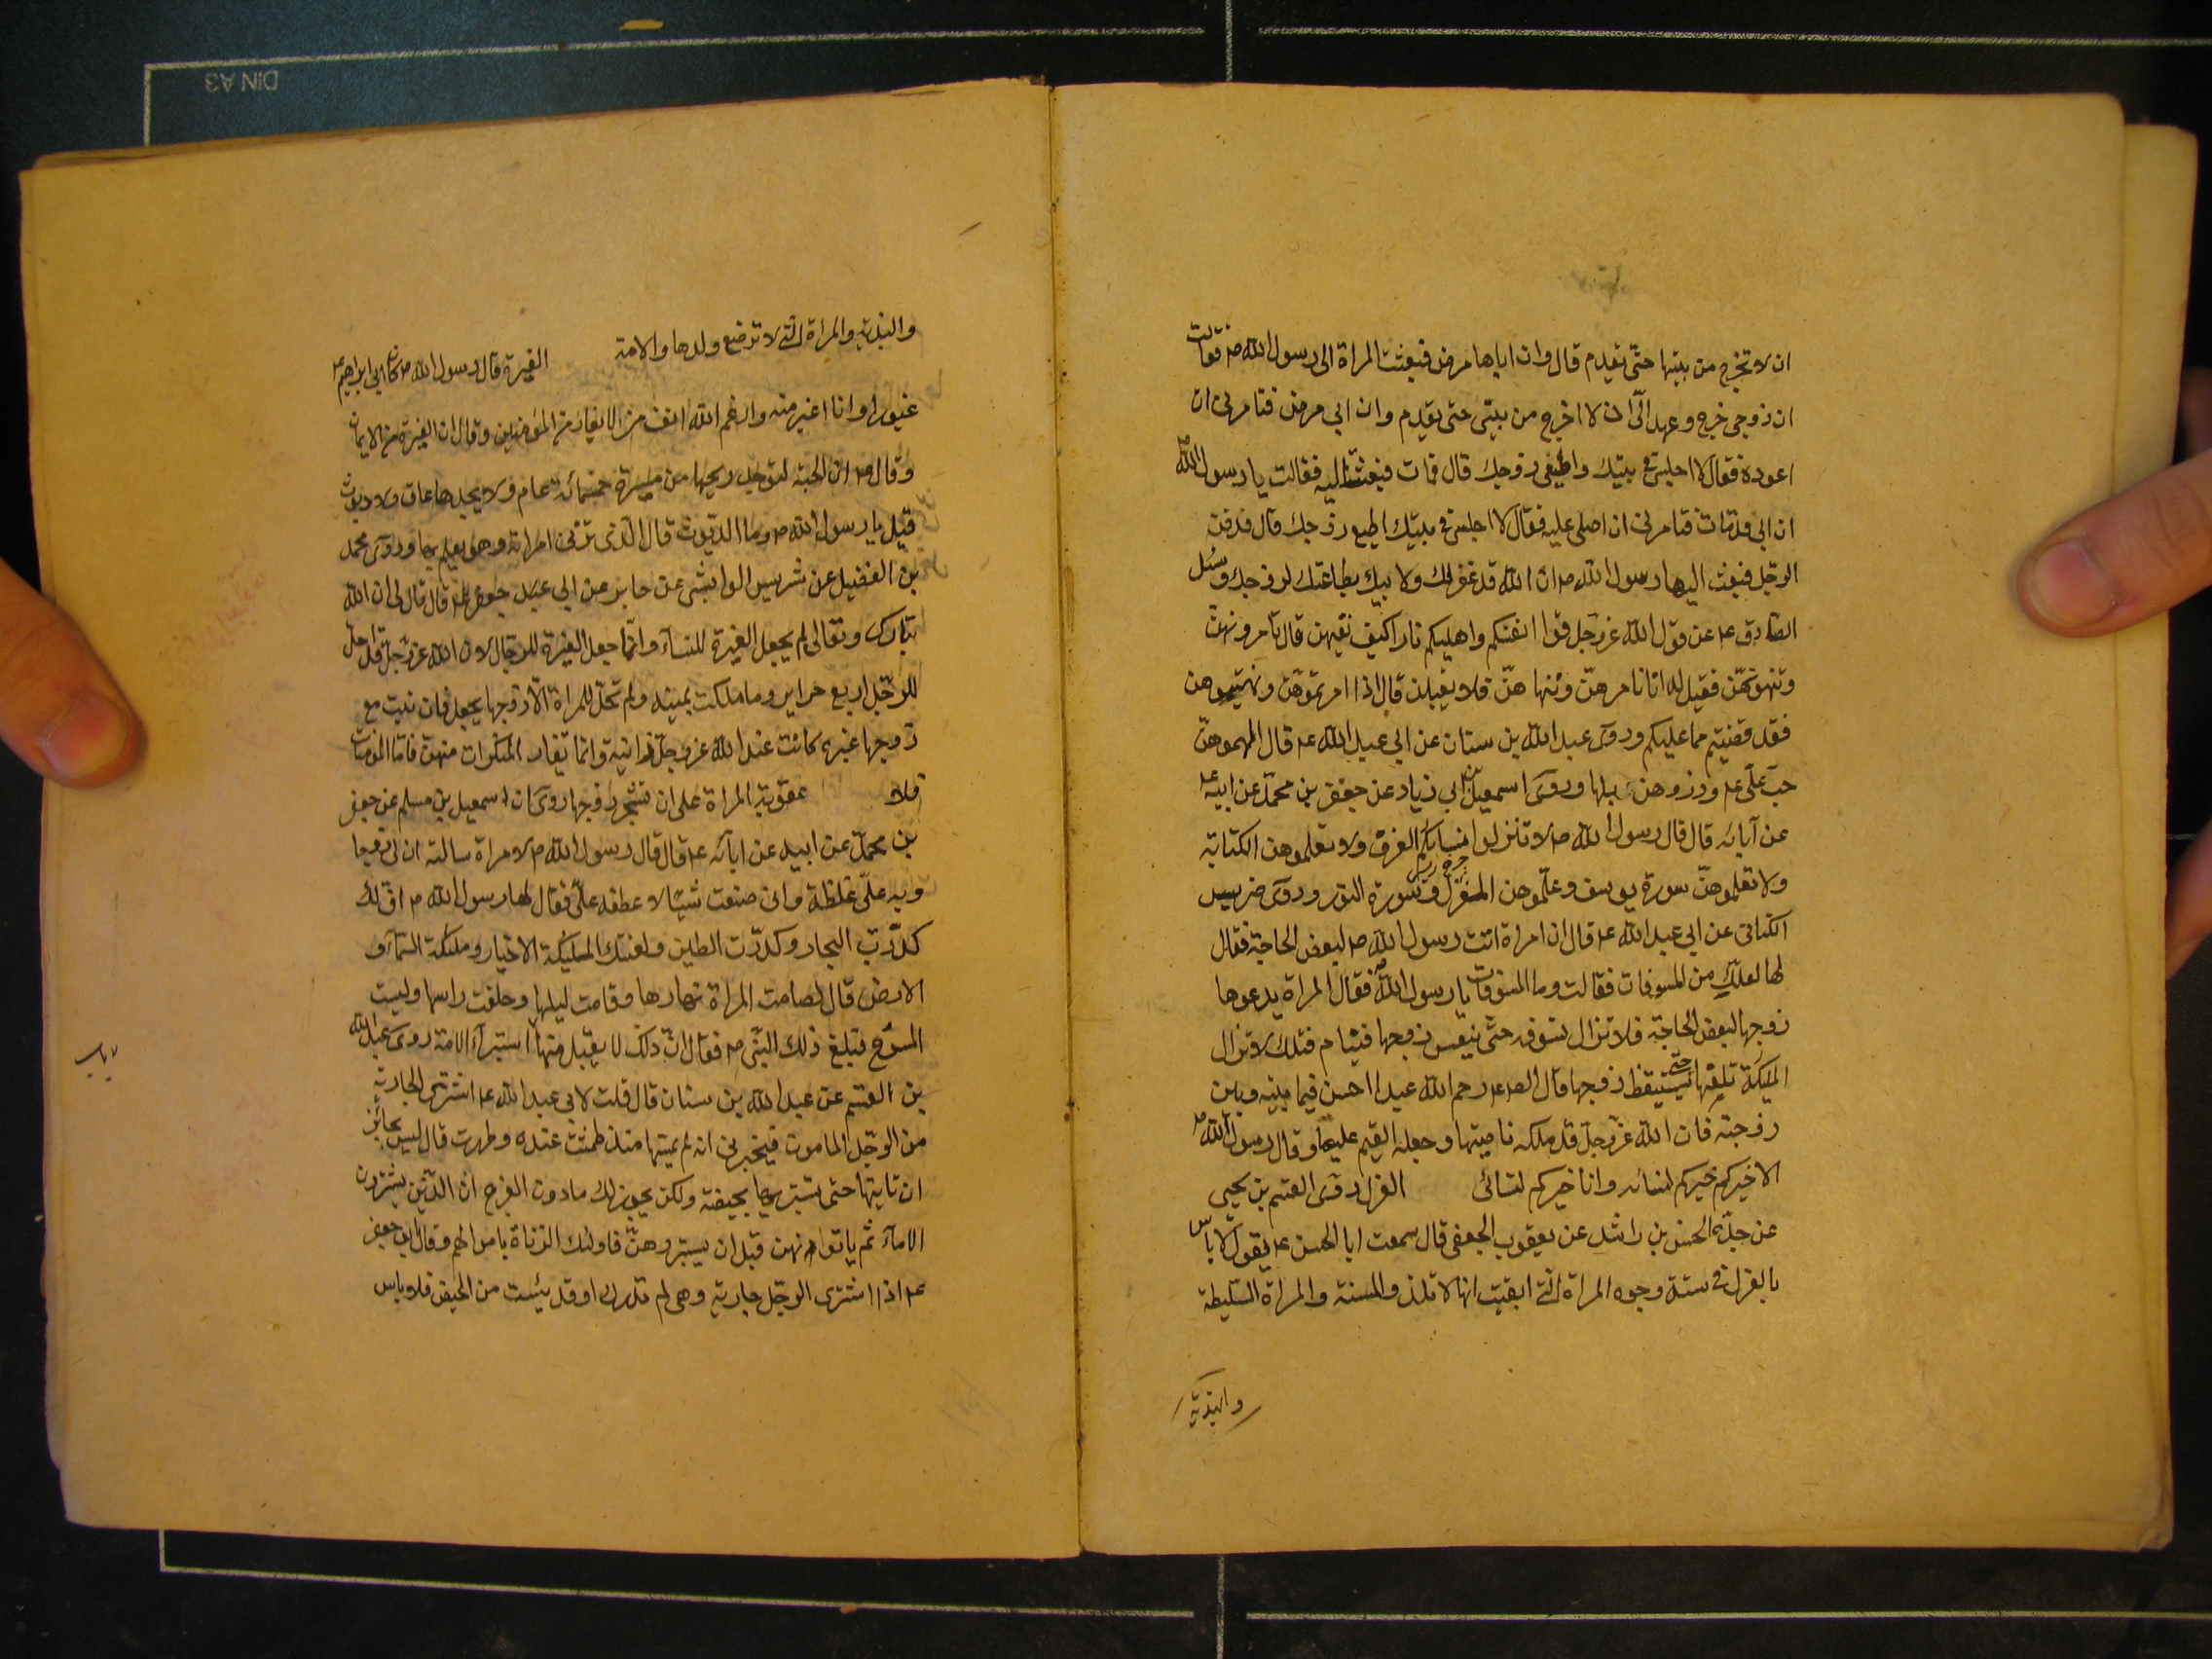 ان لا تخرج من بيتها حتى يقدم قال وان اباها مرض فبعثت المراة الى رسول الله ص فقالت
ان زوجى خرج وعهد الىّ ان لا اخرج من بيتى حتى يقدم وان ابى مرض فتامرنى ان
اعوده فقال لا اجلسى فى بيتك واطيعى زوجك قال فمات فبعثت اليه فقالت يا رسول الله ص
ان ابى قد مات فتامرنى ان اصلى عليه فقال لا اجلسى فى بيتك اطيعى زوجك قال فدفن
الرجل فبعث اليها رسول الله ص ان الله قد غفر لك ولابيك بطاعتك لزوجك وسئل
الصادق ع عن قول الله عز وجل قوا انفسكم واهليكم نارا كيف نقيهن قال تامرونهن
وتنهونهن فقيل له انا نامرهن وننهاهن فلا يقبلن قال اذا امرتموهن ونهيتموهن
فقد قضيتم ما عليكم وروى عبد الله بن سنان عن ابى عبد الله ع قال الهموهن
حب على ع وذروهن بلها وروى اسمعيل بن ابى زياد عن جعفر بن محمد عن ابيه ع
عن آبائه قال قال رسول الله ص لا تنزلوا نسائكم الغرف ولا تعلموهن الكتابة
ولا تعلموهن سورة يوسف وعلموهن المغزل وسورة النور وروى ضريس
الكنانى عن ابى عبد الله ع قال ان امراة اتت رسول الله ص لبعض الحاجة فقال
لها لعلك من المسوفات فقالت وما المسوفات يا رسول الله ص فقال المراة يدعوها
زوجها لبعض الحاجة فلا تزال تسوفه حتى ينعس زوجها فينام فتلك لا تزال
المليكة تلعنها حتى يستيقظ زوجها قال الص ع رحم الله عبدا احسن فيما بينه وبين
زوجته فان الله عز وجل قد ملكه ناصيتها وجعله القيم عليها وقال رسول الله ص
الا خيركم خيركم لنسائه وانا خيركم لنسائى العزل روى القسم بن يحيى
عن جده الحسن بن راشد عن يعقوب الجعفى قال سمعت ابا الحسن ع يقول لا باس
بالعزل فى ستة وجوه المراة التى ايقنت انها لا تلد والمسنة والمراة السليطة
والبذية
والبذية والمراة التى لا ترضع ولدها والامة الغيرة قال رسول الله ص كان ابى ابراهيم ع
غيورا وانا اغير منه وارغم الله انف من لا يغار من المؤمنين وقال ان الغيرة من الايمان
وقال ص ان الجنة لتوجد ريحها من مسيرة خمسمائة عام ولا يجدها عاق ولا ديوث
قيل يا رسول الله ص وما الديوث قال الذى تزنى امراته وهو يعلم بها وروى محمد
بن الفضيل عن شريس الوابشى عن جابر عن ابى جعفر ع قال قال لى ان الله
تبارك وتعالى لم يجعل الغيرة للنساء وانما جعل الغيرة للرجال لان الله عز وجل قد احل
للرجل اربع حراير وما ملكت يمينه ولم تحل للمراة الا زوجها يجعل فان بغت مع
زوجها غيره كانت عند الله عز وجل زانية وانما تغار المنكرات منهن فاما المؤمنات
فلا عقوبة المراة على ان تسحر زوجها روى ان اسمعيل بن مسلم عن جعفر
بن محمد عن ابيه عن ابآئه ع قال قال رسول الله ص لامراة سالته ان لى زوجا
وبه على غلظة وانى صنعت شيئا لاعطفه علىّ فقال لها رسول الله ص اف لك
كدرت البحار وكدرت الطين ولعنتك المليكة الاخيار ومليكة السمآء و
الارض قال فصامت المراة نهارها وقامت ليلها وحلقت راسها ولبست
المسوح فبلغ ذلك النبى ص فقال ان ذلك لا يقبل منها استبرآء الامة روى عبد الله
بن القسم عن عبد الله بن سنان قال قلت لابى عبد الله ع اشترى الجارية
من الرجل المامون فيخبرنى انه لم يمسها منذ طمثت عنده وطهرت قال ليس بجائز
ان تاتيها حتى تستبريها بحيضة ولكن يجوز لك ما دون الفرج ان الذين يشترون
الامآء ثم ياتونهن قبل ان يستبروهن فاولئك الزناة باموالهم وقال ابو جعفر
ع اذا اشترى الرجل جارية وهى لم تدرك او قد يئست من الحيض فلا باس